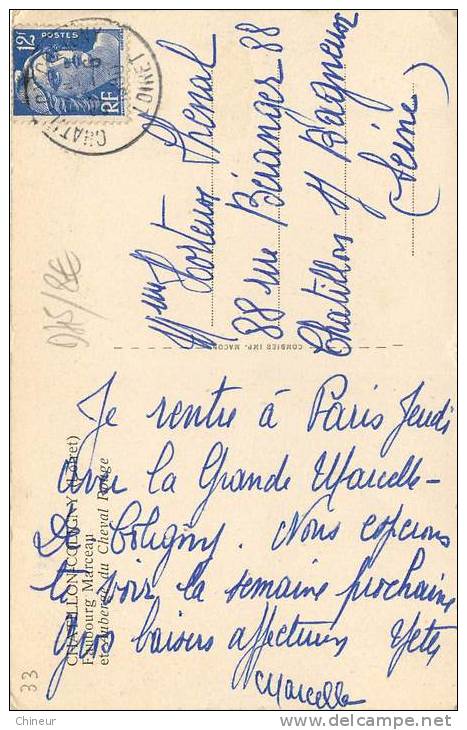 12F
POSTES
RF
CHATILLON COLIGNY
LOIRET
Mme Hortense Thenal
88 rue Béranger 88
Chatillon s/ Bagneux
(Seine)
COMBIER IMP. MACON
945/8€
Je rentre à Paris Jeudi
avec la Grande Marcelle-
De Coligny. Nous esperons
te voir la semaine prochaine
Gros baisers affectueux
Marcelle
CHATILLON-COLIGNY (Loiret)
Faubourg Marceau
et Auberge du Cheval Rouge
33
Chineur
delcampe.net